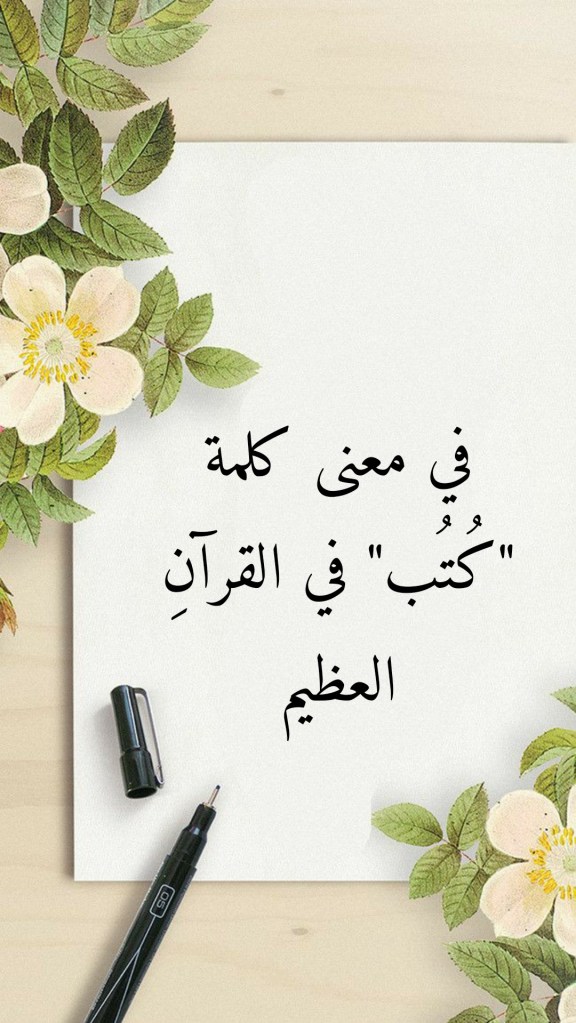 في معنى كلمة
"كُتُب" في القرآنِ
العظيم
05